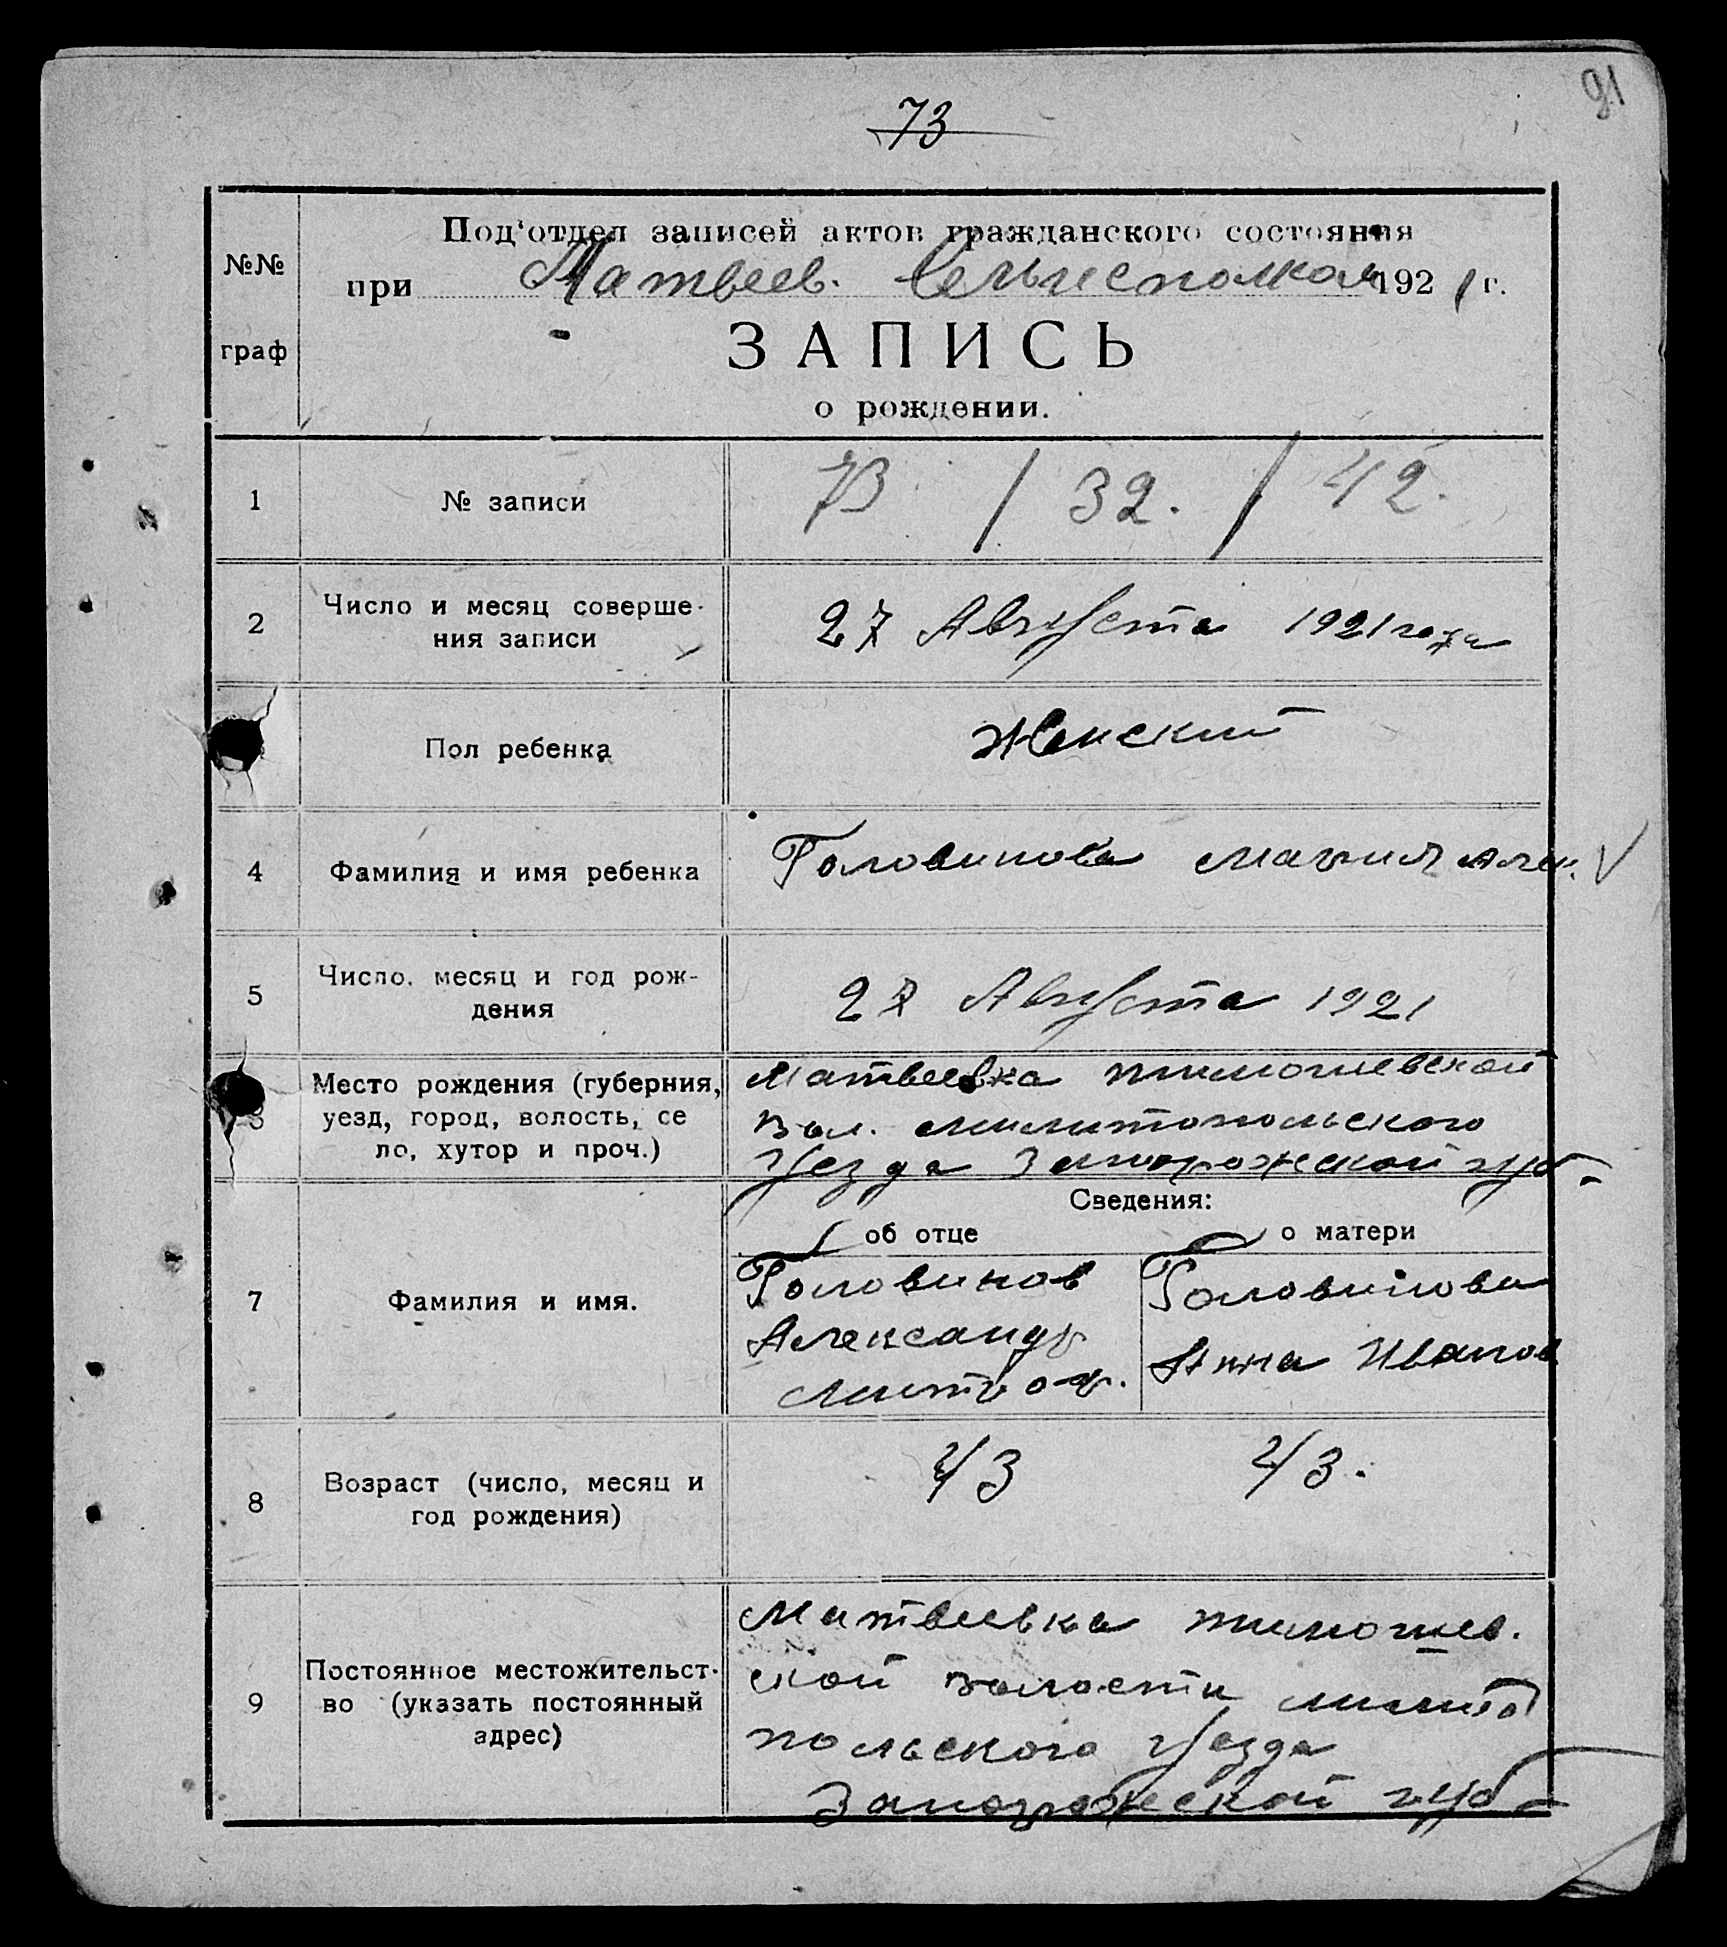 91
73
№№ граф
Под'отдел записей актов гражданского состояния
при Матвеев. Сельисполком 1921 г.
ЗАПИСЬ
о рождении.
1 № записи 73 / 32. / 42.
2 Число и месяц соверше-
ния записи 27 Августа 1921 года
Пол ребенка Женский
4 Фамилия и имя ребенка Головинова Мария Алек. V
5 Число, месяц и год рож-
дения 27 Августа 1921
Место рождения (губерния, Матвеевка тимошевской
уезд, город, волость, се вол. милитопольского
ло, хутор и проч.) уезда Запорожской губ-
Сведения:
об отце о матери
7 Фамилия и имя. Головинов Головинова
Александр Анна Иванов
Митроф.
8 Возраст (число, месяц и
год рождения) 43 43.
9 Постоянное местожительст-
во (указать постоянный
адрес) Матвеевка тимошев.
ской волости милито
польского уезда
Запорожской губ-